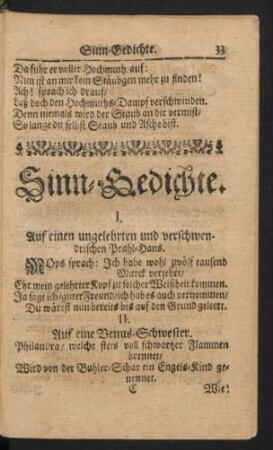 Sinn-Gedichte. 33
Da fuhr er voller Hochmuth auf:
Nun ist an mir kein Stäubgen mehr zu finden!
Ach! sprach ich drauf/
Laß doch den Hochmuths-Dampf verschwinden.
Denn niemals wird der Staub an dir vermist/
So lange du selbst Staub und Asche bist.
Sinn-Gedichte.
I.
Auf einen ungelehrten und verschwen-
drischen Prahl-Hans.
MOps sprach: Ich habe wohl zwölf tausend
Marck verzehrt/
Eh'r mein gelehrter Kopf zu solcher Weißheit kommen.
Ja sagt ich/guter Freund/ich hab es auch vernommen/
Du wärest nun bereits bis auf den Grund geleert.
II.
Auf eine Venus-Schwester.
Philandra/ welche stets voll schwartzer Flammen
brennet/
Wird von der Buhler-Schar ein Engels-Kind ge-
nennet.
C Wie!